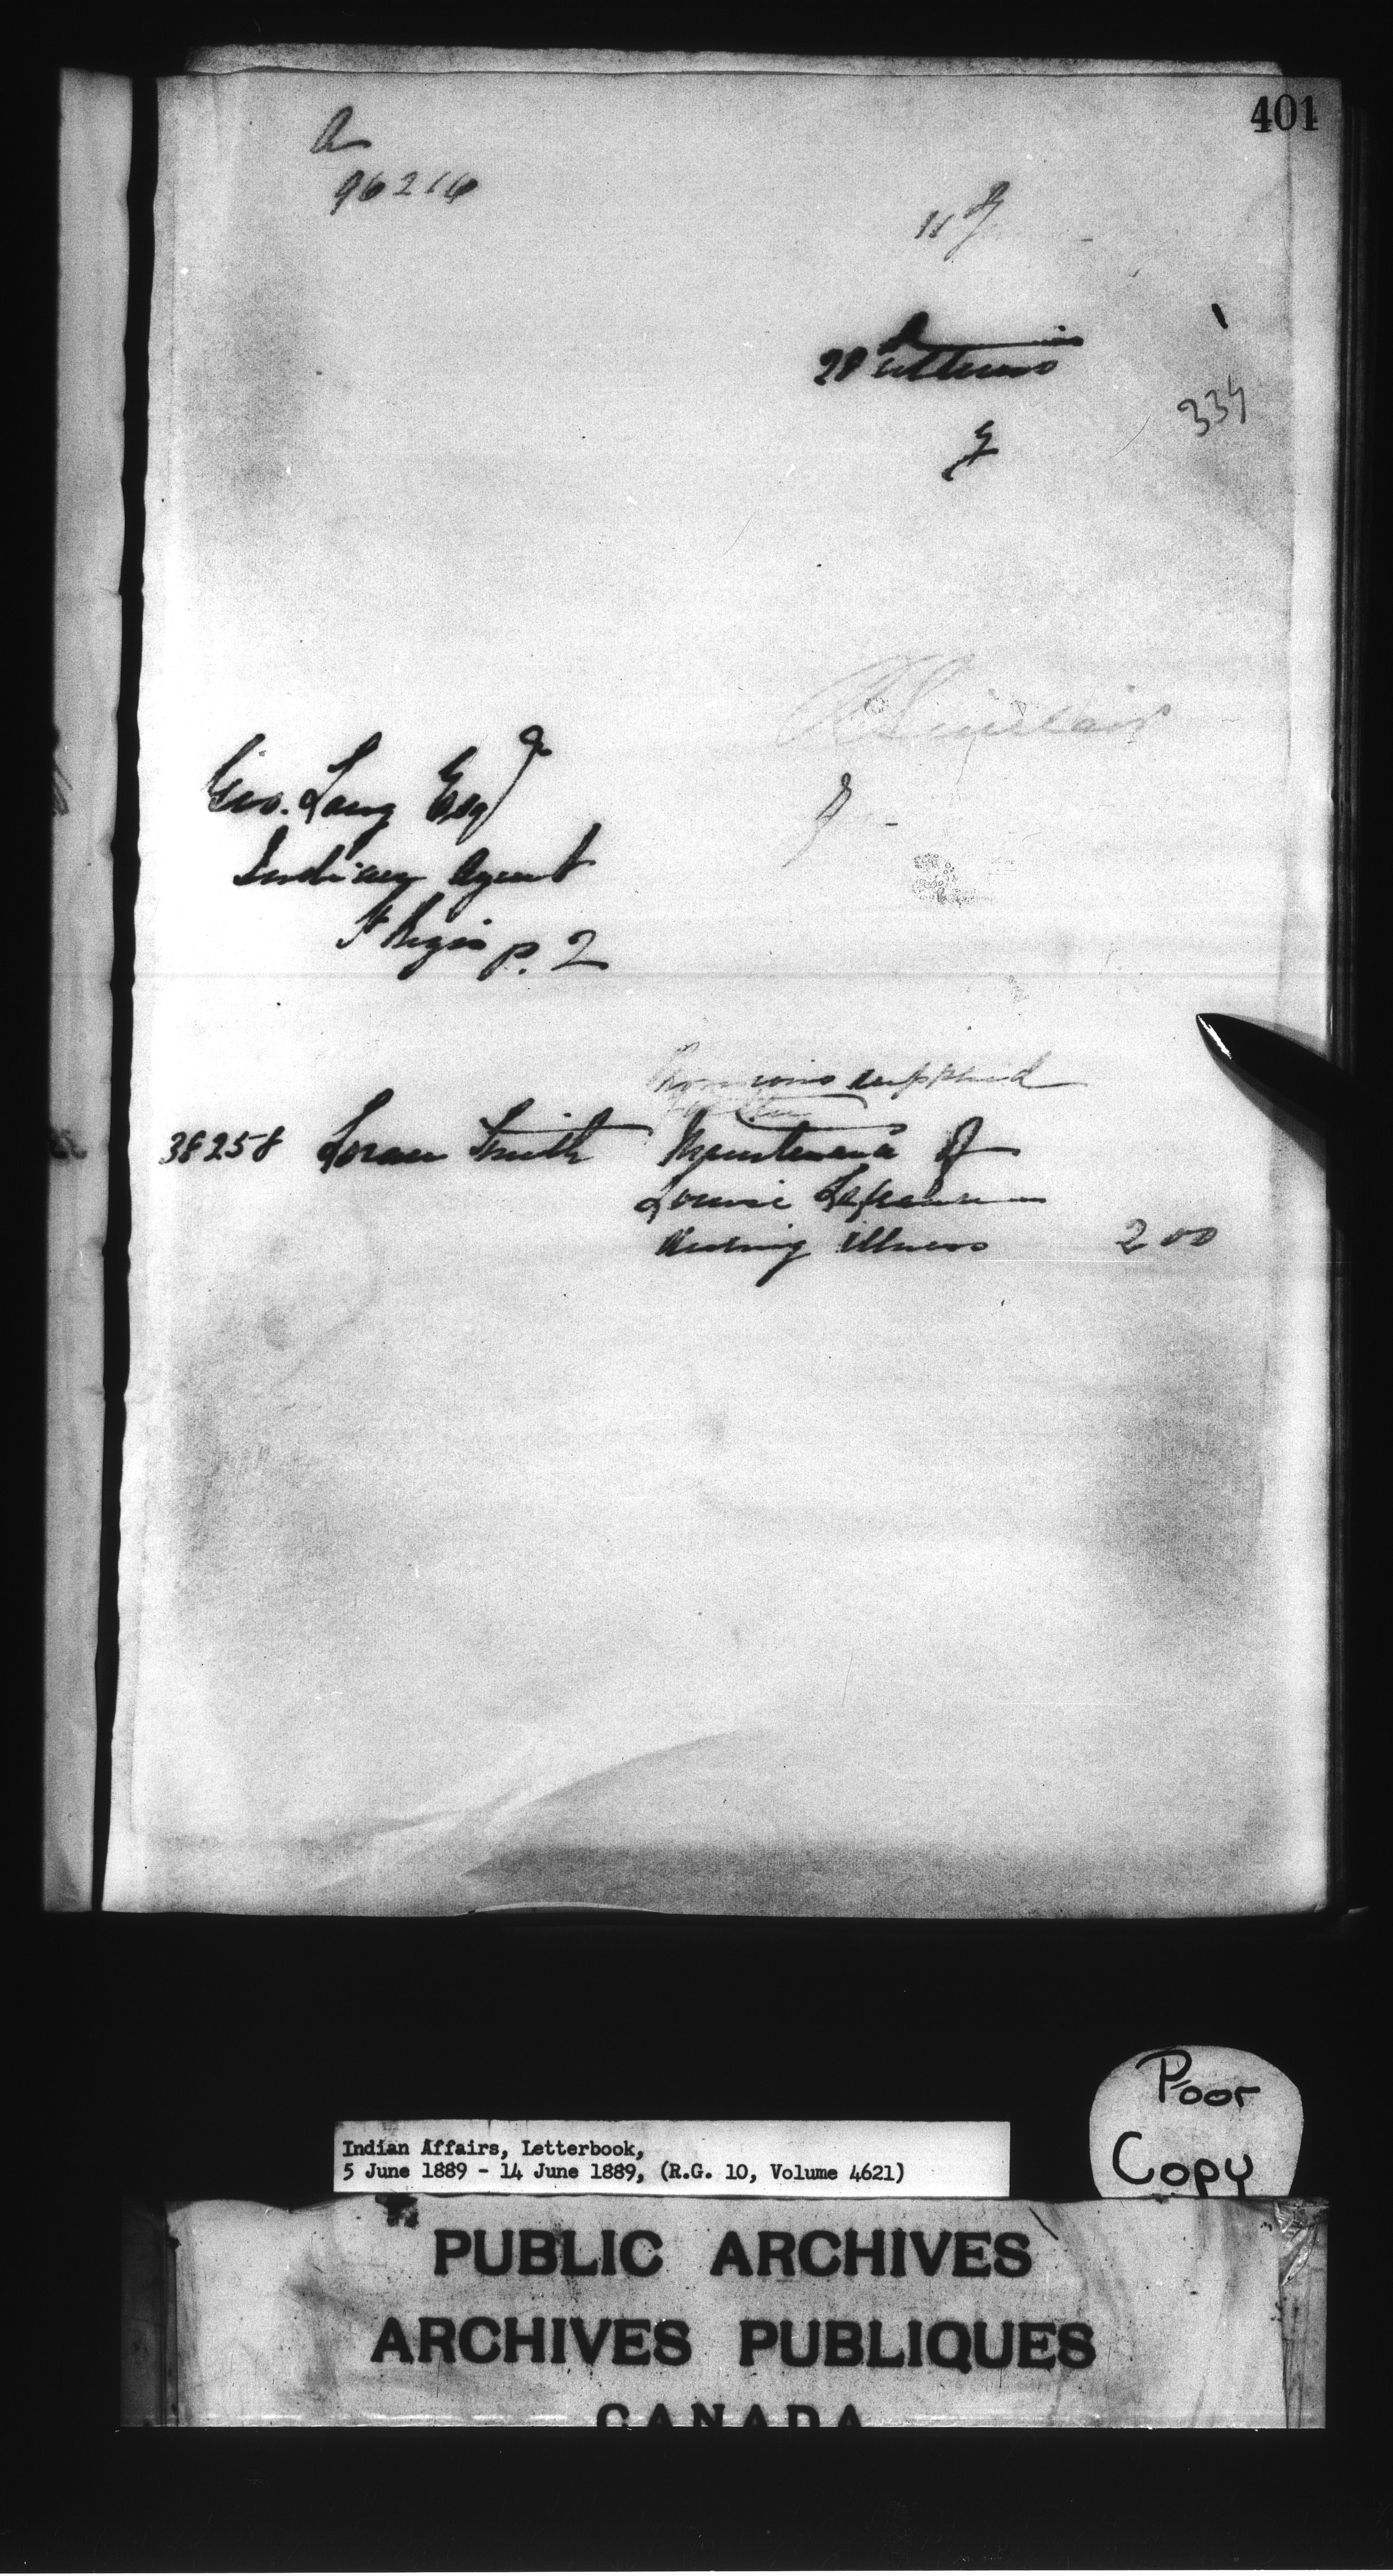 401
A
96216
11
28 ultimo
334
R Sinclair
Geo. Long Esqr
Indian Agent
St Regis P. 2
Provisions supplied
38258 Loran Smith Maintenance of
Louise
during illness 2 00
Poor
Copy
Indian Affairs, Letterbook,
5 June 1889 - 14 June 1889, (R.G. 10, Volume 4621)
PUBLIC ARCHIVES
ARCHIVES PUBLIQUES
CANADA